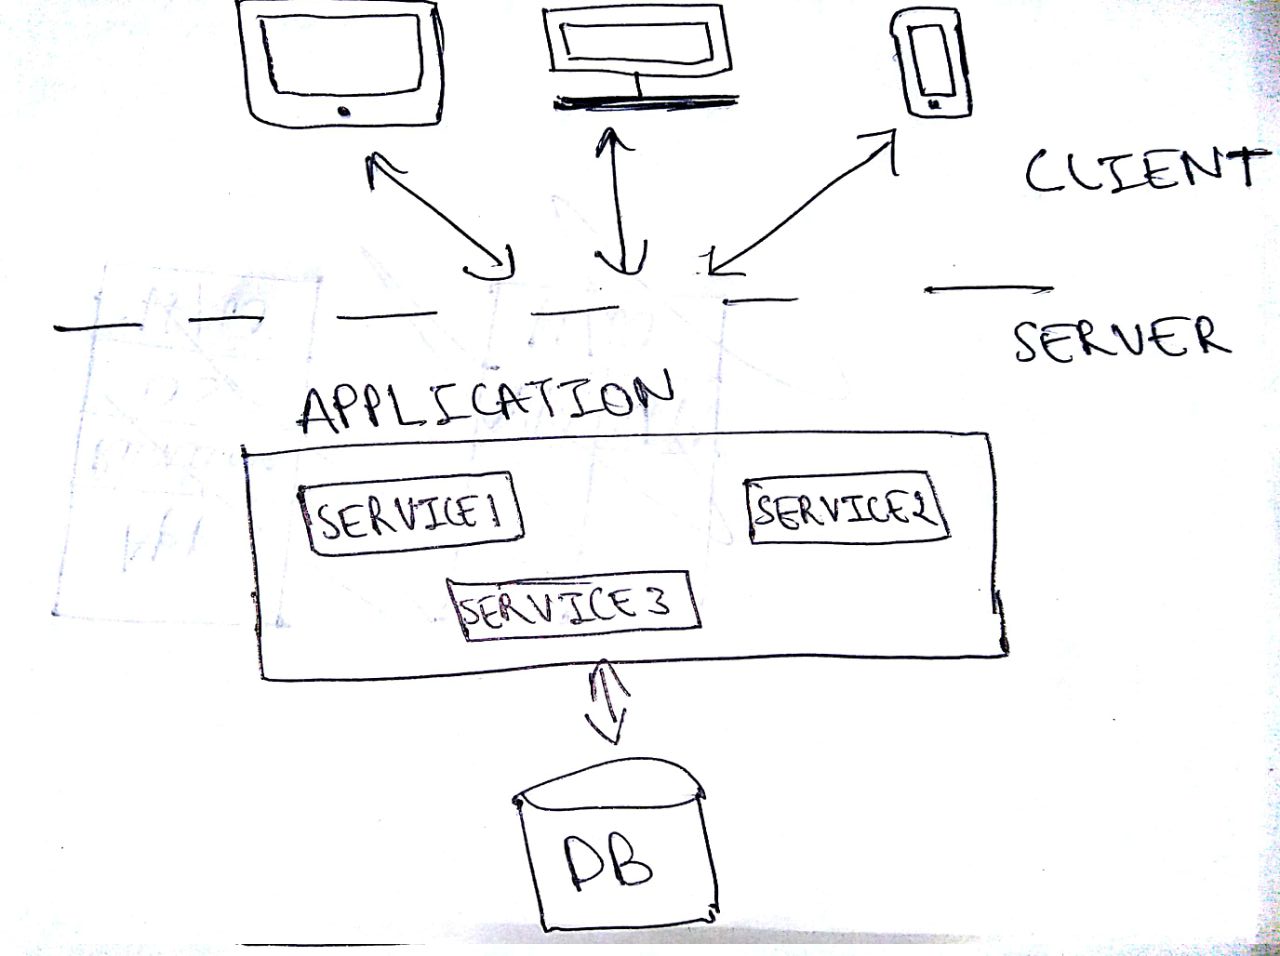 CLIENT
SERVER
APPLICATION
SERVICE1
SERVICE2
SERVICE3
DB